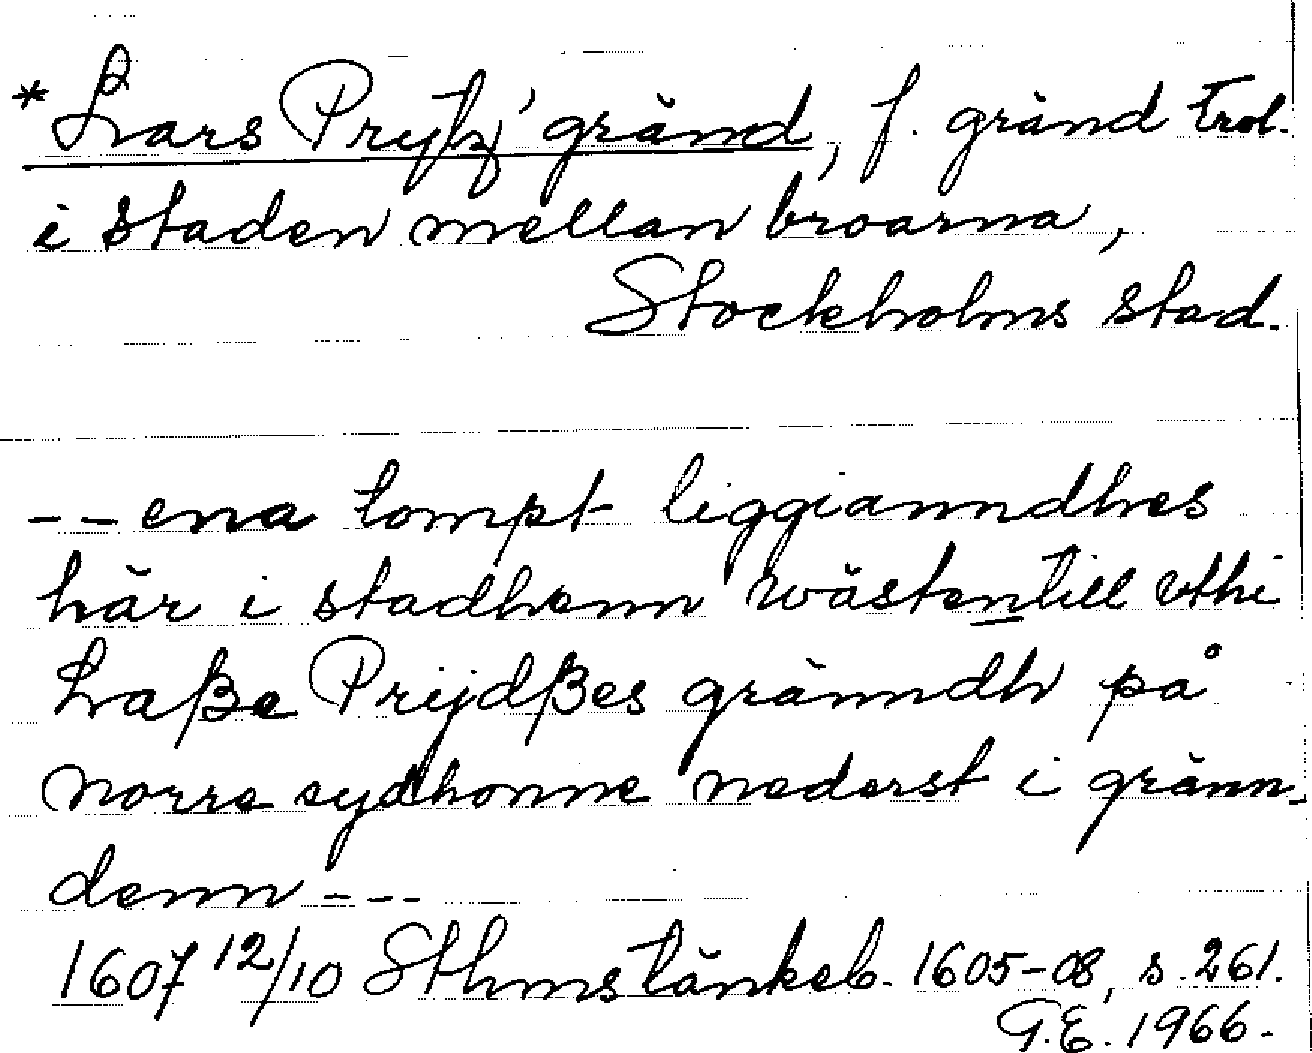 *Lars Prytz' gränd, f. gränd trol.
i staden mellan broarna,
Stockholms stad.
--ena tompt liggianndhes
här i stadhenn wästentill vthi
Laße Prijdßes gränndh på
norre sydhonne nederst i gränn-
denn ---
1607 12/10 Sthms tänkeb. 1605-08, s. 261.
G.E. 1966.